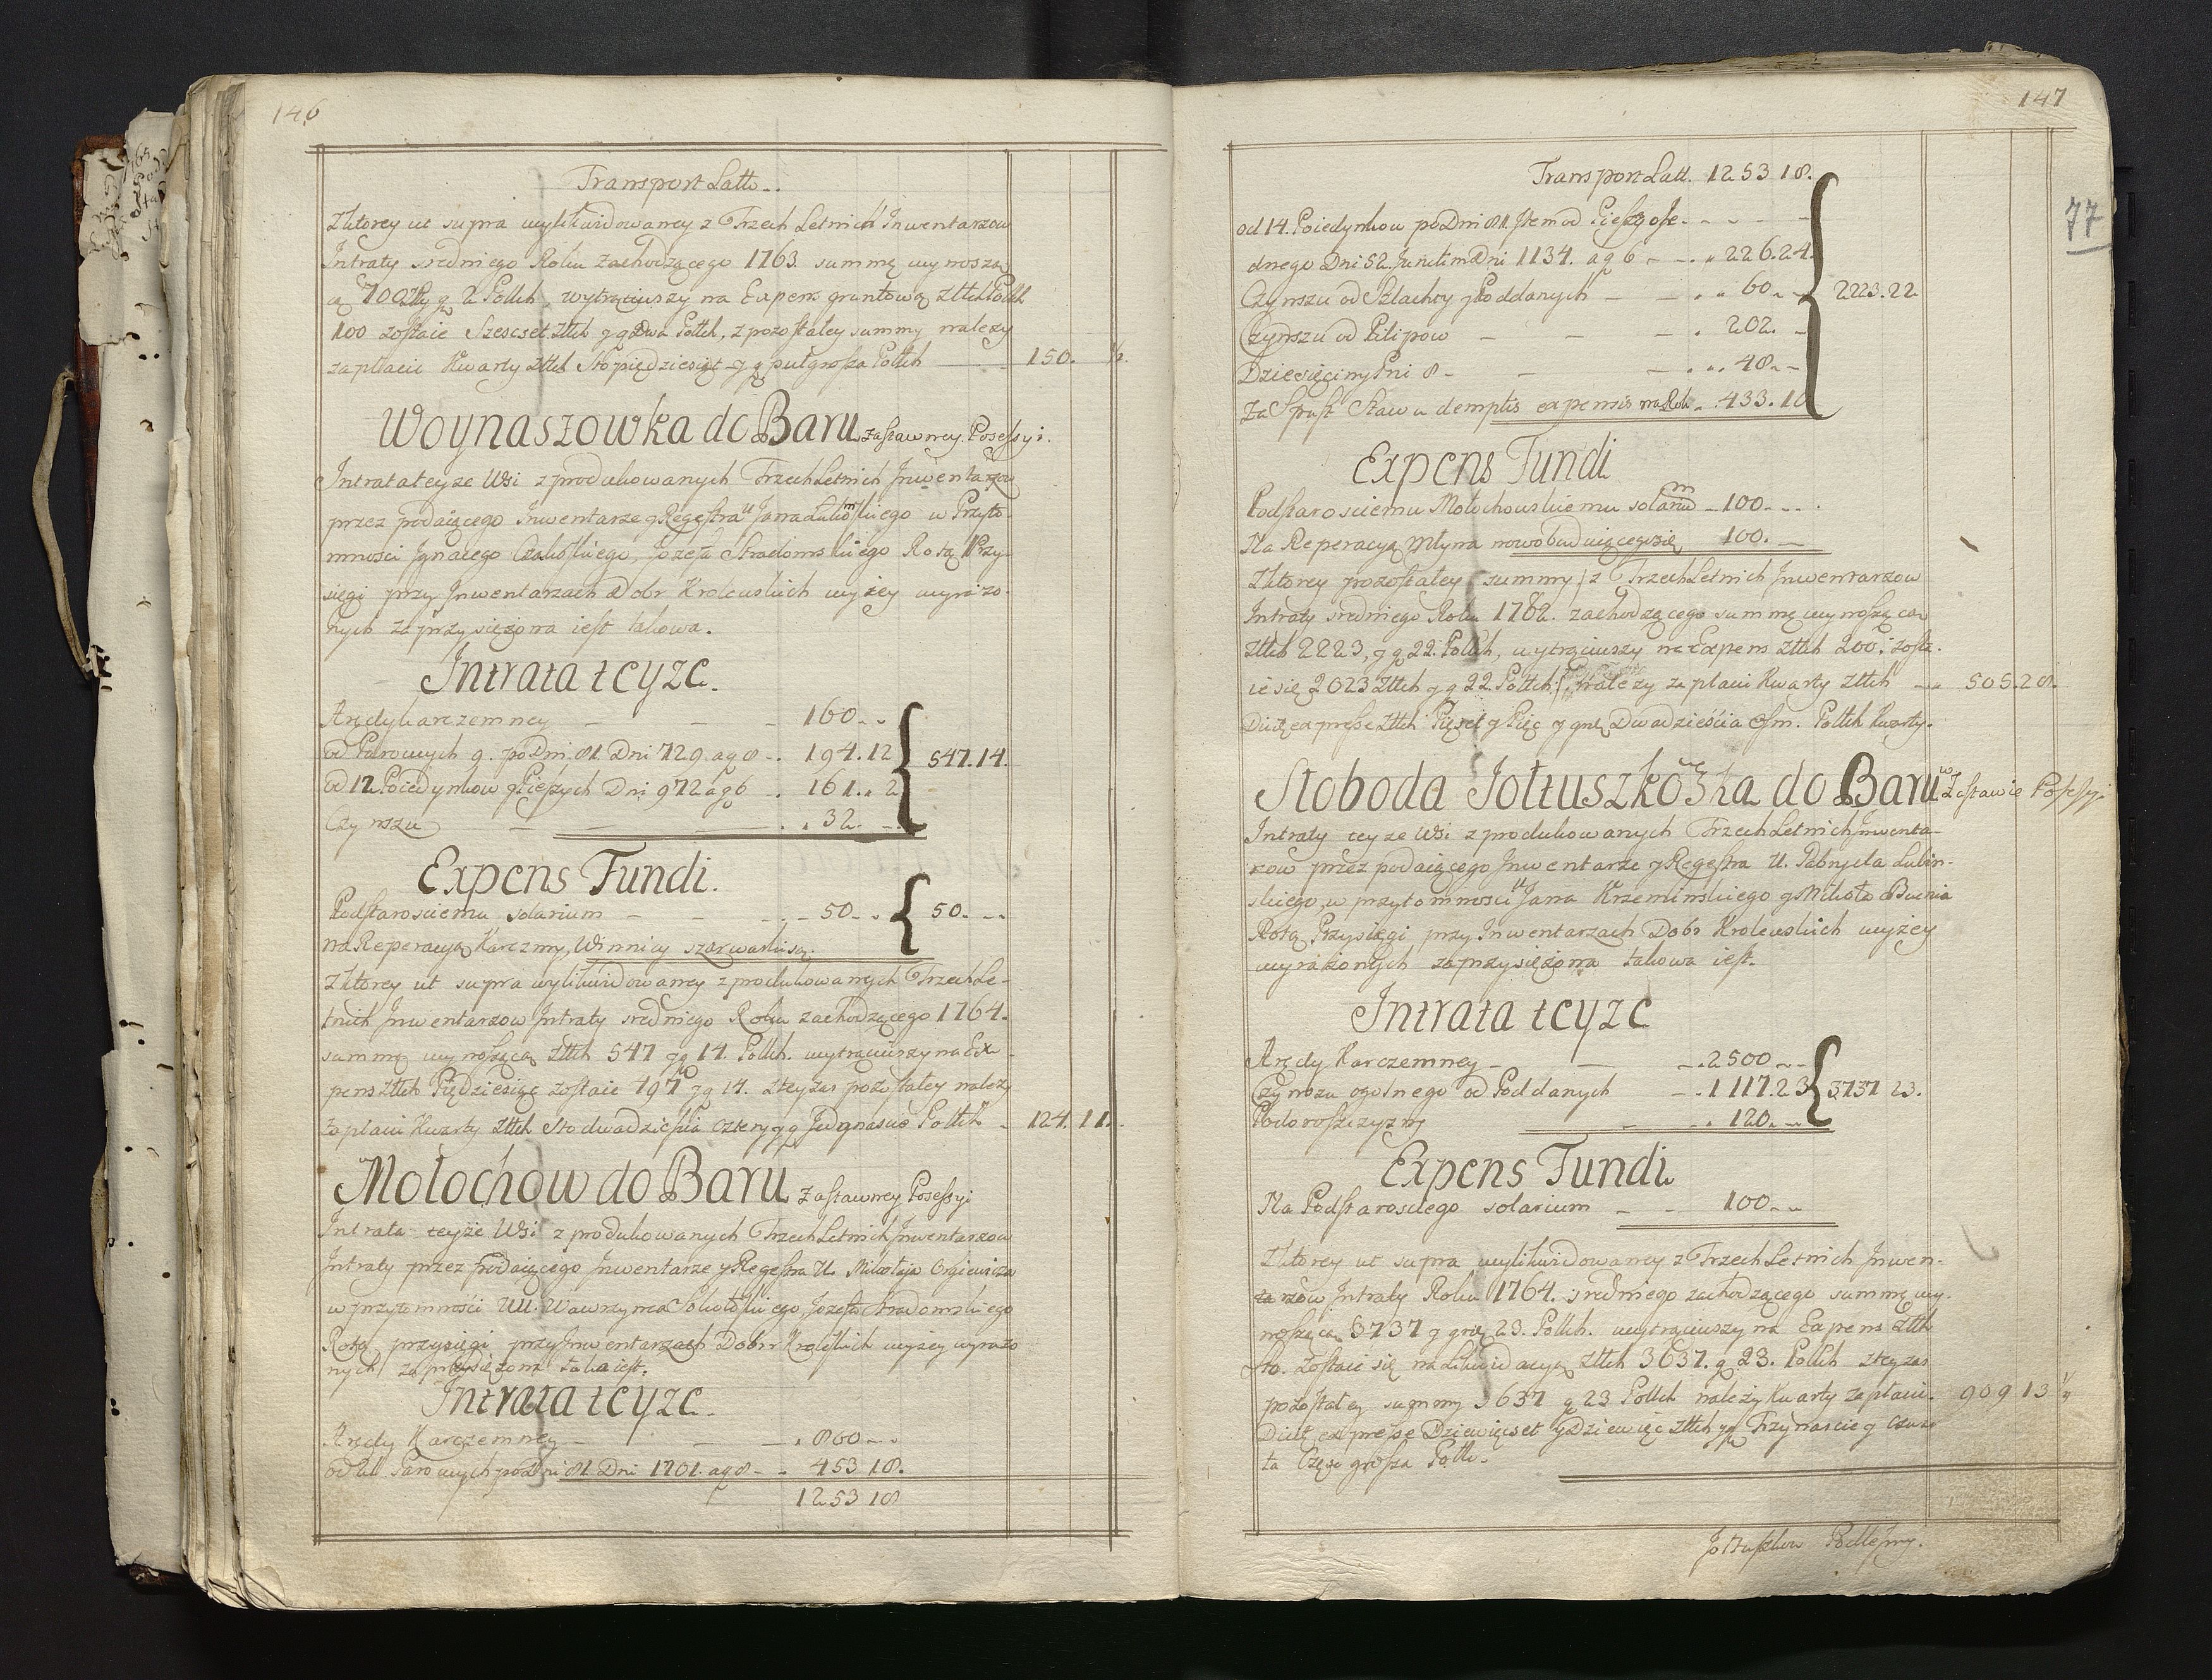 146
Transport Latt..
Zktorey ut supra wylikwidowaney z Trzech Letnich Inwentarzow
Intraty sredniego Roku zachodzącego 1763. summę wynoszą-
cą 700 Złł y g 2 Polch, wytrąciwszy na Expens gruntową Złłch Polch
100 zostaie Szescset Złłch y g Dwa Polch, z pozostałey summy nalezy
zapłacic Kwarty Złłch Sto pięcdziesiąt y g puł grosza Polch — 150. ½.
Woynaszowka do Baru zastawney Possessyi.
Intrata teyze Wsi z produkowanych Trzech Letnich Inwentarzow
przez podaiącego Inwentarze y Regestra U Jana
mnosci Ignacego Józefa Stradomskiego Rotą Przy-
sięgi przy Inwentarzach Dobr Krolewskich wyzey wyrazo-
nych zaprzysięzona iest takowa.
Intrata teyze.
Arędy karczemney — — — 160..
od Parowych 9. po Dni 81. Dni 729. a g 8 -. 194.12 547.14.
od 12 Poiedynkow y Pieszych Dni 972 a g 6 -. 161.. 2
Czynszu — — — . . 32. —
Expens Fundi.
Podstarosciemu solarium — — — . - 50. . 50. —
na Reperacyą Karczmy, Winnicy szarwarki są.
Zktorey ut supra wylikwidowaney z produkowanych Trzech Le-
tnich Inwentarzow Intraty sredniego Roku zachodzącego 1764.
summę wynoszącą Złłch 547 y g 14 Polch. wytrąciwszy na Ex-
pens Złłch Pięcdziesiąt zostaie 497 y g 14. zteyzas pozostałey nalezy
zapłacic Kwarty Złłch Sto dwadziescia cztery y g Jedynascie Polch - 124.11.
Mołochow do Baru zastawney Possessyi
Intrata teyże Wsi z produkowanych Trzech Letnich Inwentarzow
Intraty przez podaiącego Inwentarze y Regestra U. Mikołaja
w przytomności UU. Wawrzynca Sokołskiego, Jozefa Stradomskiego
Rotą przysięgi przy Inwentarzach Dobr Krolewskich wyżey wyrażo
nych zaprzysiężona taka iest.
Intrata teyze.
Arędy Karczemney — — — . 800 — .
od 21 Parowych po Dni 81. Dni 1701. a g 8 - . 453 18.
1253 18
147
77
Transport Latt. 1253 18.
od 14. Poiedynkow po Dni 81. Item od Pieszego Je- - - -
dnego Dni 52. Junctim Dni 1134. a g 6 — - . 226.24.
Czynszu od Szlachty y Poddanych — — . . 60. — 2223.22
Czynszu od Pilipow — — — . 202. —
Dziesięciny Pni 8 - — — . .. 48. —
Za Spust Stawu demptis expensis na Rok - . 433.10
Expens Fundi
Podstarosciemu Mołochowskiemu solarium — 100 - - .
Na Reperacyą Młyna nowobuduiącego się 100. —
Zktorey pozostałey summy z Trzech Letnich Inwentarzow
Intraty sredniego Roku 1762. zachodzącego summę wynoszącą
Złłch 2223, y g 22. Polch, wytrąciwszy na Expens Złłch 200, zosta-
ie się 2023 Złłch y g 22 Polch nalezy zapłacic Kwarty Złłch — 505.28.
Dicto expresse Złłch Pięcset y Pięc y g Dwadzieścia Ośm. Polch kwarty.
Słoboda Jołtuszkowska do Baru w Zastawie Possessyi
Intraty teyze Wsi z produkowanych Trzech Letnich Inwenta-
rzow przez podaiącego Inwentarze y Regestra U. Gabryela Lubin-
skiego, w przytomnosci U Jana Krzeminskiego y Mikoła Bucnia
Rotą Przysięgi, przy Inwentarzach Dobr Krolewskich wyżey
wyrażonych zaprzysiężona takowa iest.
Intrata teyze
Arędy Karczemney — — — . 2500 —
Czynszu ogolnego od Poddanych — . 1117.23 3737 23.
Podoroszczyzny — — . 120. —
Expens Fundi
Na Podstarosciego solarium — - 100 - -
Zktorey ut supra wylikwidowaney z Trzech Letnich Inwen-
tarzow Intraty Roku 1764. sredniego zachodzącego summę wy-
noszącą 3737 y g 23. Polch. wytrąciwszy na Expens Złłch
sto. Zostaie się na Likwidacyą Złłch 3637. g 23. Polch zteyzas
pozostałey summy 3637 g 23 Polch nalezy Kwarty zapłacic. 909 13 ¼
Dicto expresse Dziewięcset y Dziewięć Złłch y g Trzynascie y czwar
ta Częsc grosza Polch.
Jołtuszkow Podleśny.